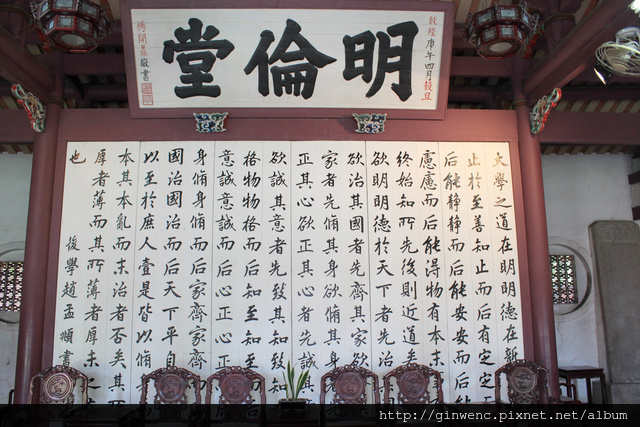 明倫堂
乾隆庚午四月穀旦
楊開鼎敬書
大學之道在明明德在新
止於至善知止而后有定定
后能靜靜而后能安安而后
慮慮而后能得物有本末
終始知所先後則近道矣
欲明明德於天下者先治
欲治其國者先齊其家欲
家者先脩其身欲脩其身
正其心欲正其心者先誠
欲誠其意者先致其知
格物物格而后知至知
意誠意誠而后心正心正
身脩身脩而后家齊家齊
國治國治而后天下平自
以至於庶人壹是皆以脩
本其本亂而末治者否矣其
厚者薄而其所薄者厚未之
也
後學趙孟頫書
http://ginwenc.pixnet.net/album